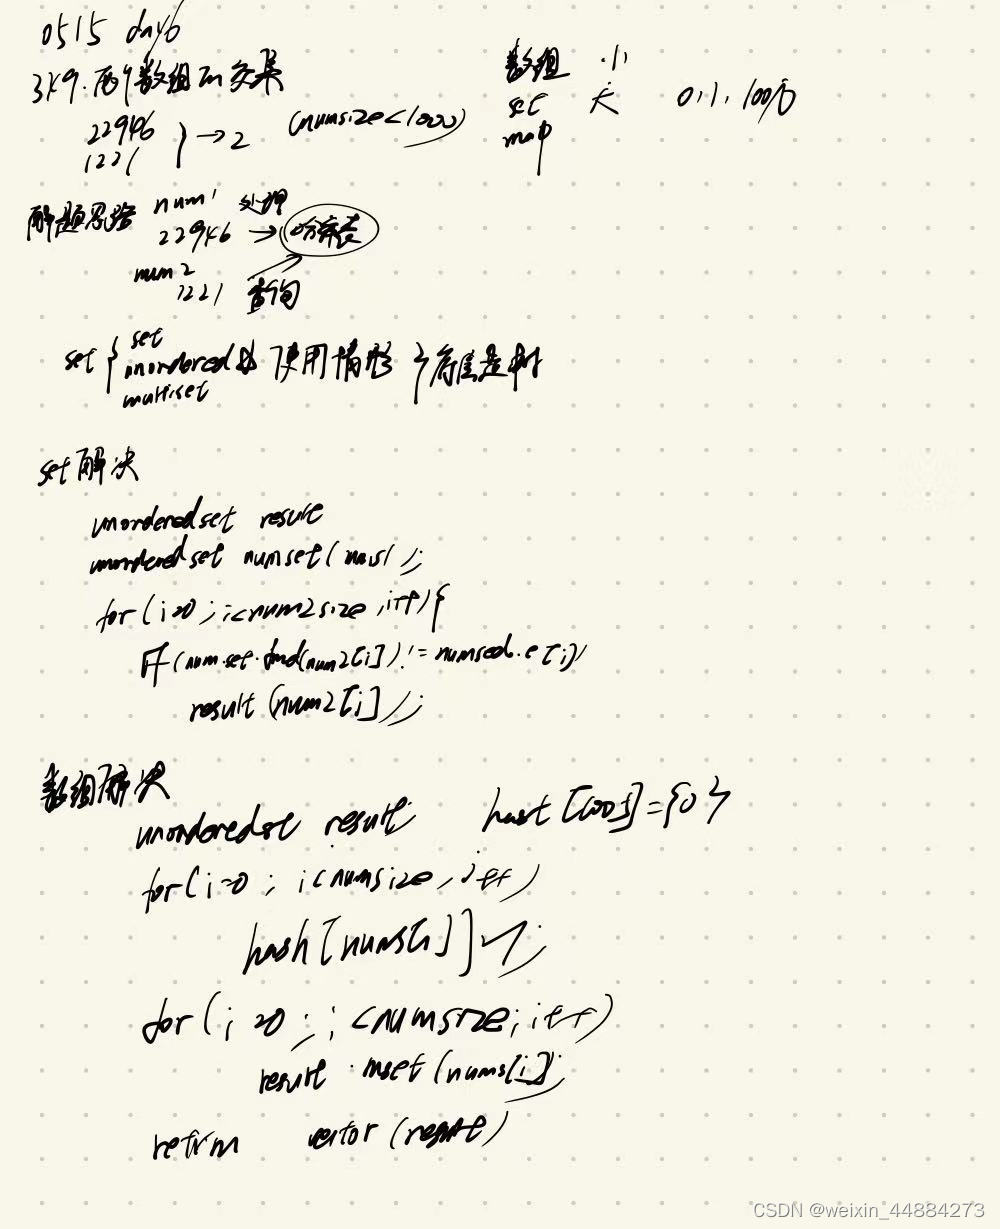 0515 day6
349.两个数组的交集
22946
1221
→2 (numsize<1000)
数组 小
set 大 0,1,100万
map
解题思路 num1 处理
22946 → 哈希表
num2
1221 查询
set { set
unordered set 使用情形 } 底层是树
multiset
set解决
unorderedset result
unorderedset numset(nums1);
for(i=0;i<num2size,i++){
if(numset.find(num2[i])!=numsed.e[i])
result(num2[i]);
数组解决
unorderedset result hast[1005]={0}
for(i=0;i<numsize,i++)
hash[nums[i]]=1;
for(i=0;i<numsize;i++)
result inset(nums[i]);
return vector(result)
CSDN @weixin_44884273